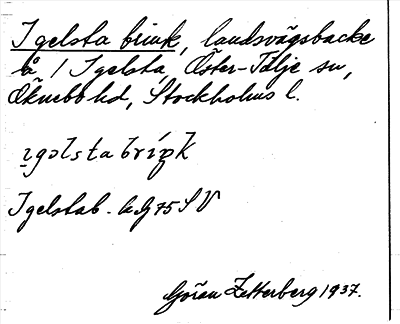 Igelsta brink, landsvägsbacke
å / Igelsta, Öster-Tälje sn,
Öknebo hd, Stockholms l.
ı̣gəlsta bríŋk
Igelstab. SV
Göran Zetterberg 1937.